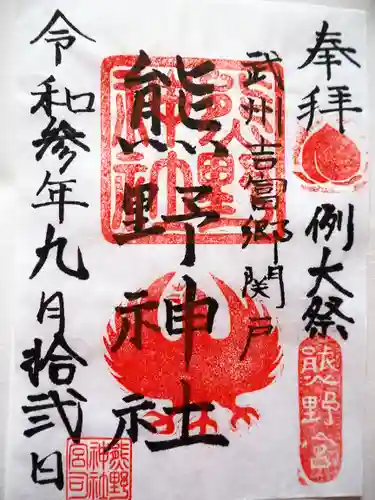 奉拝
例大祭
熊野宮
武州吉富郷関戸
熊野神社
熊野神社
令和参年九月拾弐日
熊野
神社
宮司